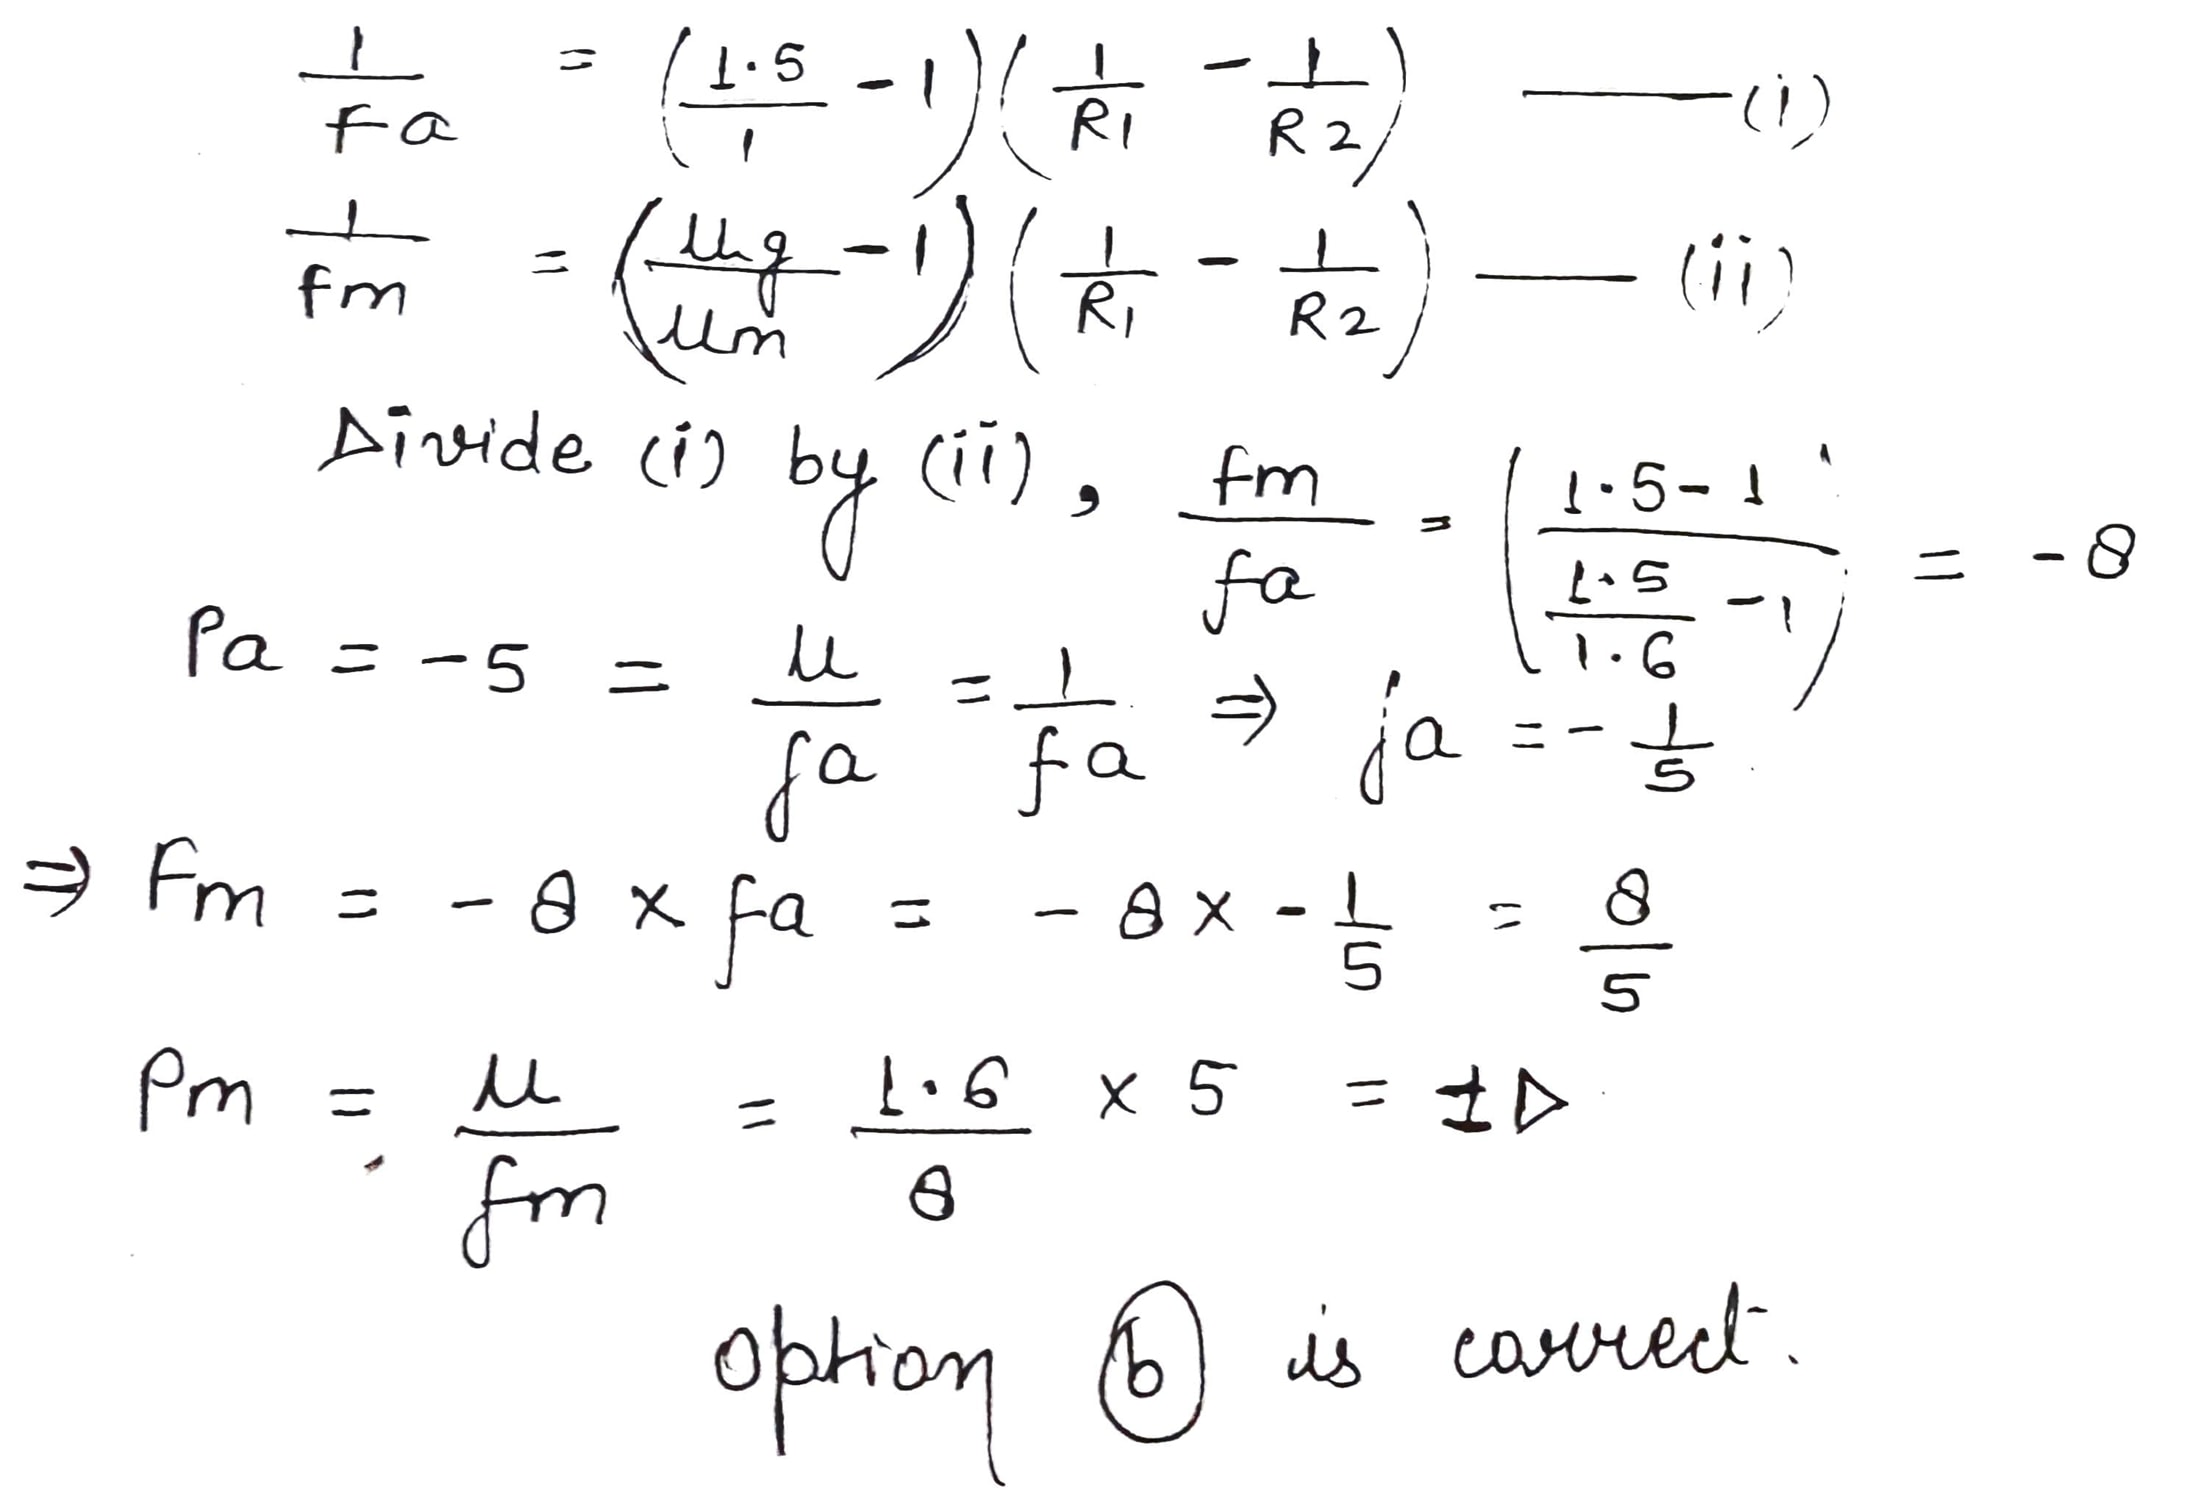 1/Fa = (1.5/1 - 1)(1/R1 - 1/R2) —— (i)
1/fm = (μg/μm - 1)(1/R1 - 1/R2) —— (ii)
Divide (i) by (ii), fm/fa = (1.5-1/(1.5/1.6 - 1)) = -8
Pa = -5 = μ/fa = 1/fa ⇒ fa = -1/5
⇒ Fm = -8 × fa = -8 × -1/5 = 8/5
Pm = μ/fm = 1.6/8 × 5 = 1D
option (b) is correct.